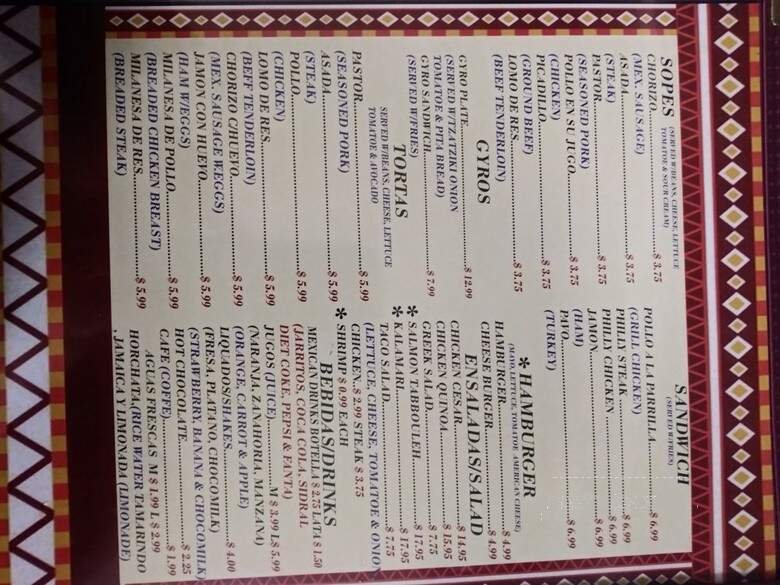 SOPES (SERVED W/BEANS, CHEESE, LETTUCE
TOMATOE & SOUR CREAM)
CHORIZO..........$ 3.75
(MEX. SAUSAGE)
ASADA..........$ 3.75
(STEAK)
PASTOR..........$ 3.75
(SEASONED PORK)
POLLO EN SU JUGO..........$ 3.75
(CHICKEN)
PICADILLO..........$ 3.75
(GROUND BEEF)
LOMO DE RES..........$ 3.75
(BEEF TENDERLOIN)
GYROS
GYRO PLATE..........$ 12.99
(SERVED W/TZATZIKI ONION
TOMATOE & PITA BREAD)
GYRO SANDWICH..........$ 7.99
(SERVED W/FRIES)
TORTAS
SERVED W/BEANS, CHEESE, LETTUCE
TOMATOE & AVOCADO
PASTOR..........$ 5.99
(SEASONED PORK)
ASADA..........$ 5.99
(STEAK)
POLLO..........$ 5.99
(CHICKEN)
LOMO DE RES..........$ 5.99
(BEEF TENDERLOIN)
CHORIZO C/HUEVO..........$ 5.99
(MEX. SAUSAGE W.EGGS)
JAMON CON HUEVO..........$ 5.99
(HAM W/EGGS)
MILANESA DE POLLO..........$ 5.99
(BREADED CHICKEN BREAST)
MILANESA DE RES..........$ 5.99
(BREADED STEAK)
SANDWICH
(SERVED W/FRIES)
POLLO A LA PARRILLA..........$ 6.99
(GRILL CHICKEN)
PHILLY STEAK..........$ 6.99
PHILLY CHICKEN..........$ 6.99
JAMON..........$ 6.99
(HAM)
PAVO..........$ 6.99
(TURKEY)
* HAMBURGER
(MAYO, LETTUCE, TOMATOE AMERICAN CHEESE)
HAMBURGER..........$ 4.99
CHEESE BURGER..........$ 4.99
ENSALADAS/SALAD
CHICKEN CESAR..........$ 14.95
CHICKEN QUINOA..........$ 15.95
GREEK SALAD..........$ 7.75
* SALMON TABBOULEH..........$ 17.95
* KALAMARI..........$ 17.95
TACO SALAD..........$ 7.75
(LETTUCE, CHEESE, TOMATOE & ONION
CHICKEN..$ 2.99 STEAK $ 3.75
* SHRIMP $ 0.99 EACH
BEBIDAS/DRINKS
MEXICAN DRINKS BOTELLA $ 2.75 LATA $ 1.50
(JARRITOS, COCA COLA, SIDRAL
DIET COKE, PEPSI & FANTA)
JUGOS (JUICE)..........M $ 3.99 L$ 5.99
(NARANJA, ZANAHORIA, MANZANA)
(ORANGE, CARROT & APPLE)
LIQUADOS/SHAKES..........$ 4.00
(FRESA, PLATANO, CHOCOMILK)
(STRAWBERRY, BANANA & CHOCOMILK)
HOT CHOCOLATE..........$ 2.25
CAFE (COFFE)..........$ 1.99
AGUAS FRESCAS M $ 1.99 L $ 2.99
HORCHATA,(RICE WATER TAMARINDO
, JAMAICA Y LIMONADA (LIMONADE)